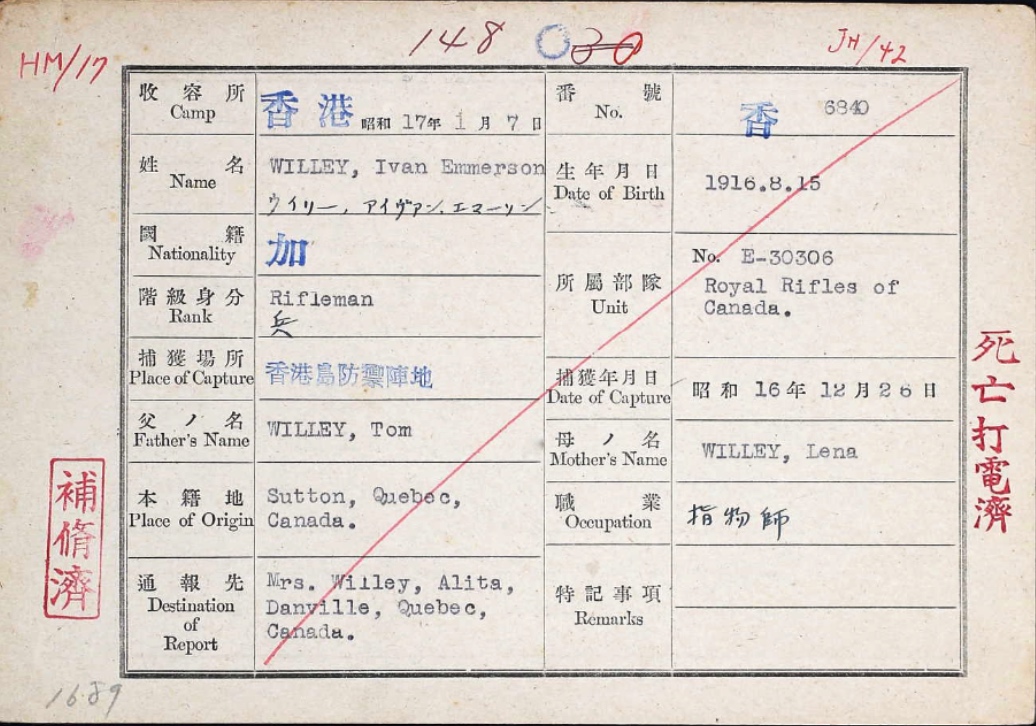 HM/17
148
30
JH/42
收容所
Camp
香港 昭和 17年 1月 7日
番號
No.
香 6840
姓名
Name
WILLEY, Ivan Emmerson
ウイリー, アイヴァン.エマーソン
生年月日
Date of Birth
1916.8.15
國籍
Nationality
加
所屬部隊
Unit
No. E-30306
Royal Rifles of
Canada.
階級身分
Rank
Rifleman
兵
捕獲場所
Place of Capture
香港島防禦陣地
捕獲年月日
Date of Capture
昭和 16年 12月 26日
父ノ名
Father's Name
WILLEY, Tom
母ノ名
Mother's Name
WILLEY, Lena
本籍地
Place of Origin
Sutton, Quebec,
Canada.
職業
Occupation
指物師
通報先
Destination
of
Report
Mrs. Willey, Alita,
Danville, Quebec,
Canada.
特記事項
Remarks
補脩濟
死亡打電濟
1689